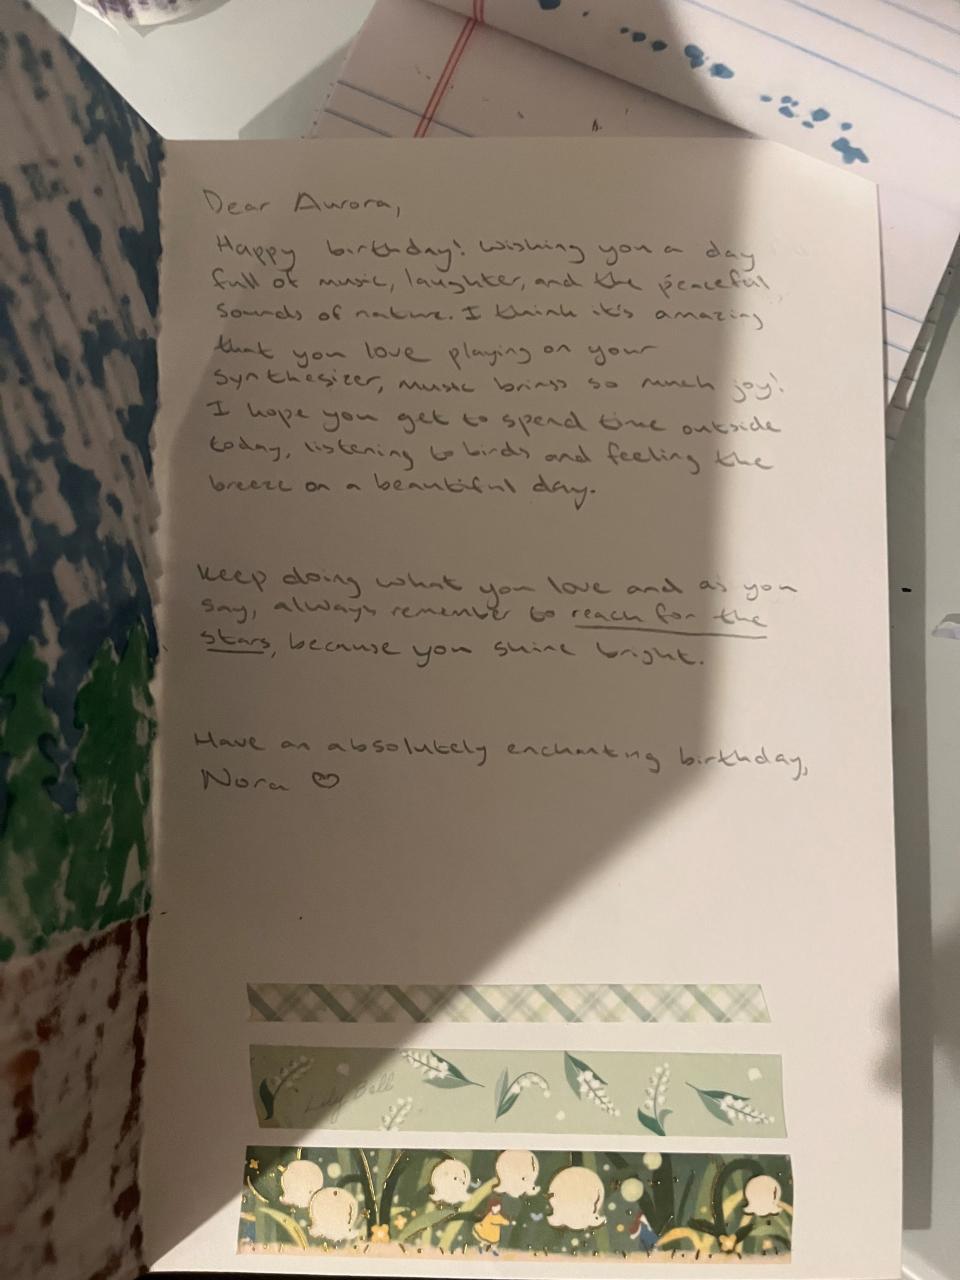 Dear Aurora,
Happy birthday! Wishing you a day
full of music, laughter, and the peaceful
sounds of nature. I think it's amazing
that you love playing on your
synthesizer, music brings so much joy!
I hope you get to spend time outside
today, listening to birds and feeling the
breeze on a beautiful day.
Keep doing what you love and as you
say, always remember to reach for the
stars, because you shine bright.
Have an absolutely enchanting birthday,
Nora ♡
Lily Bell